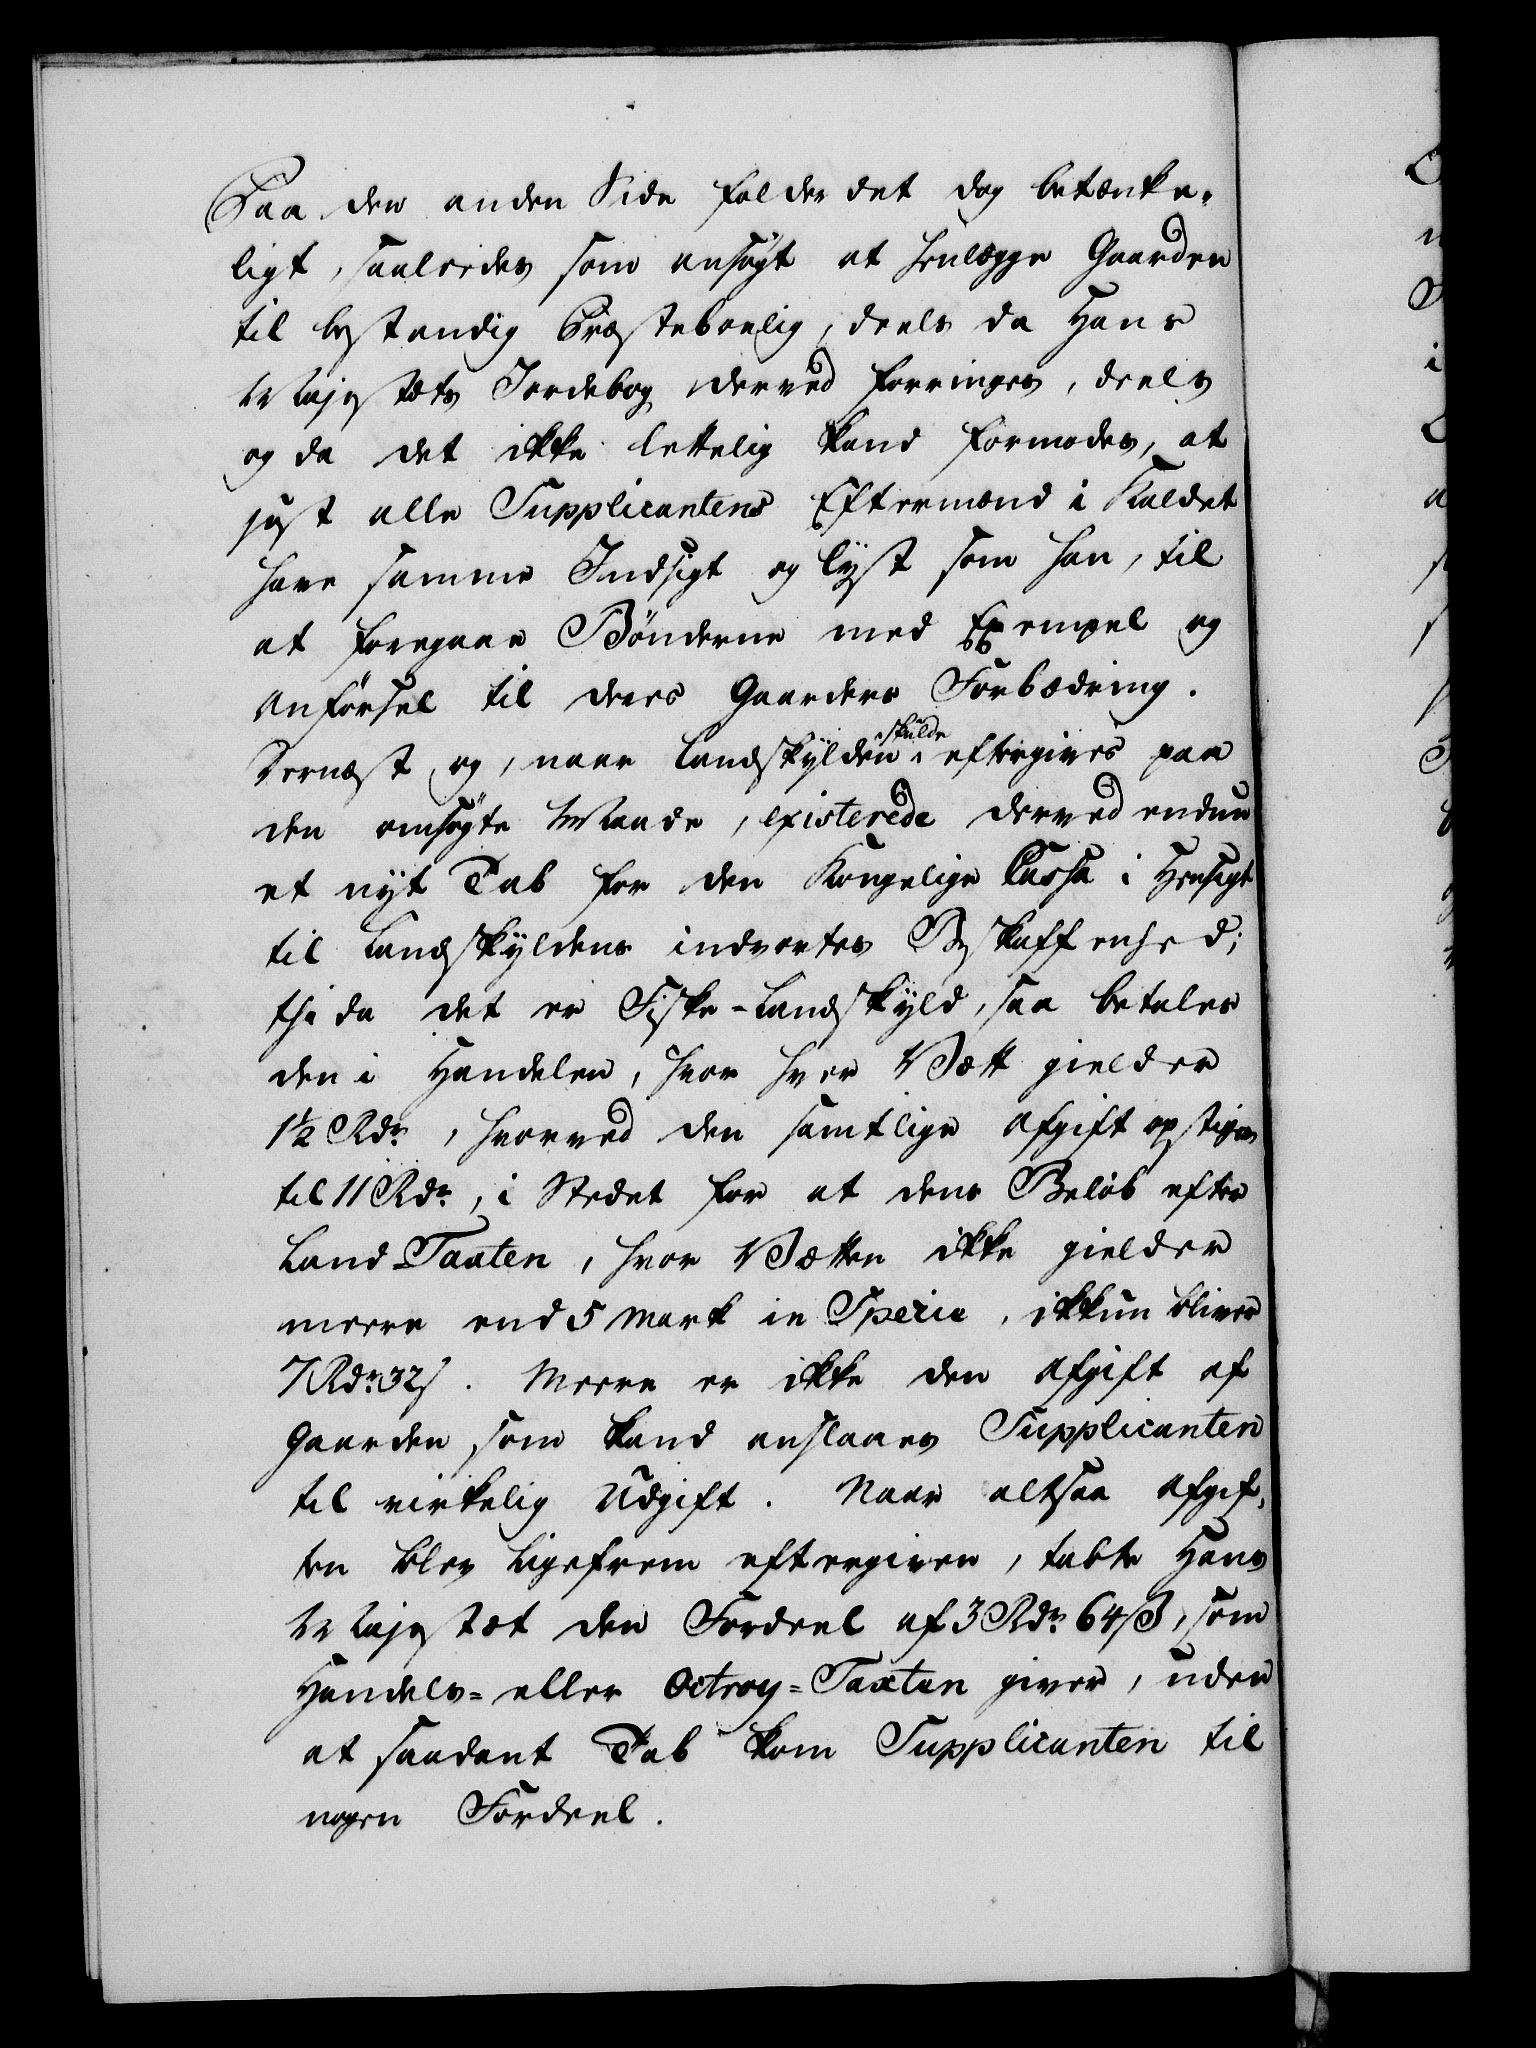 Paa den anden Side falder det dog betænke-
ligt, saaledes som ansøgt at henlægge Gaarden
til bestandig Præsteboelig, deels da Hans
Majestæts Jordebog derved forringes, deels
og da det ikke lettelig kand formodes, at
just alle Supplicantens Eftermænd i Kaldet
have samme Indsigt og lyst som han, til
at foregaae Bønderne med Exempel og
Anførsel til deres Gaarders Forbædring.
Dernæst og, naar Landskylden skulde eftergives paa
den ansøgte Maade, existerede derved endnu
et nyt Tab for den Kongelige Cassa i Hensigt
til Landskyldens indvortes Beskaffenhed;
thi da det er Fiske-Landskyld, saa betales
den i Handelen, hvor hver Vætt gielder
1½ Rdr, hvorved den samtlige Afgift opstiger
til 11 Rdr, i Stedet for at dens Beløb efter
Land-Taxten, hvor Vætten ikke gielder
meere end 5 Mark in Specie, ikkun bliver
7 Rdr 32 s. Meere er ikke den Afgift af
Gaarden, som kand anslaaes Supplicanten
til virkelig Udgift. Naar altsaa Afgif-
ten blev ligefrem eftergiven, tabte Hans
Majestæt den Fordeel af 3 Rdr 64 ß, som
Handels- eller Octroy-Taxten giver, uden
at saadant Tab kom Supplicanten til
nogen Fordeel.